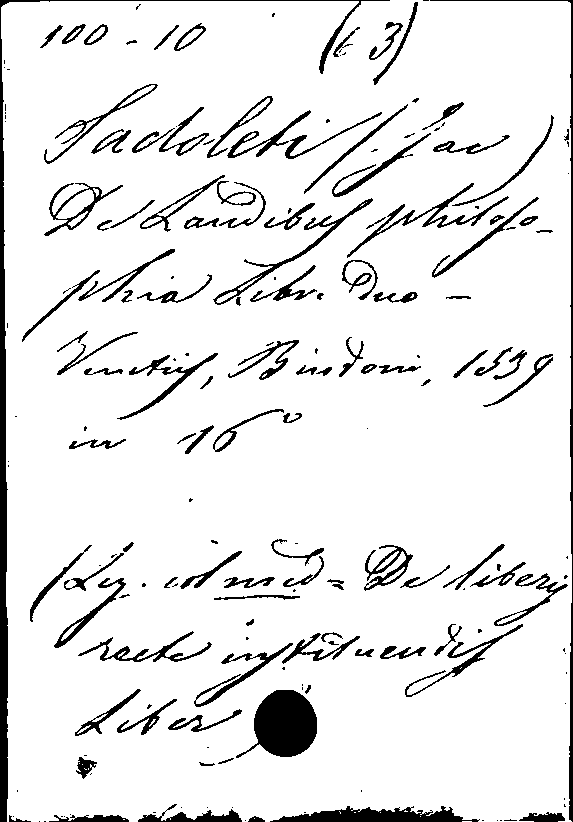 100-10 (t 3)
Sadoleti (Jac)
De Laudibus philoso-
phia Libr. Duo -
Venetiis, Bindoni, 1539
in 16°
(Leg. col med = De liberis
recte instituendis
Liber)